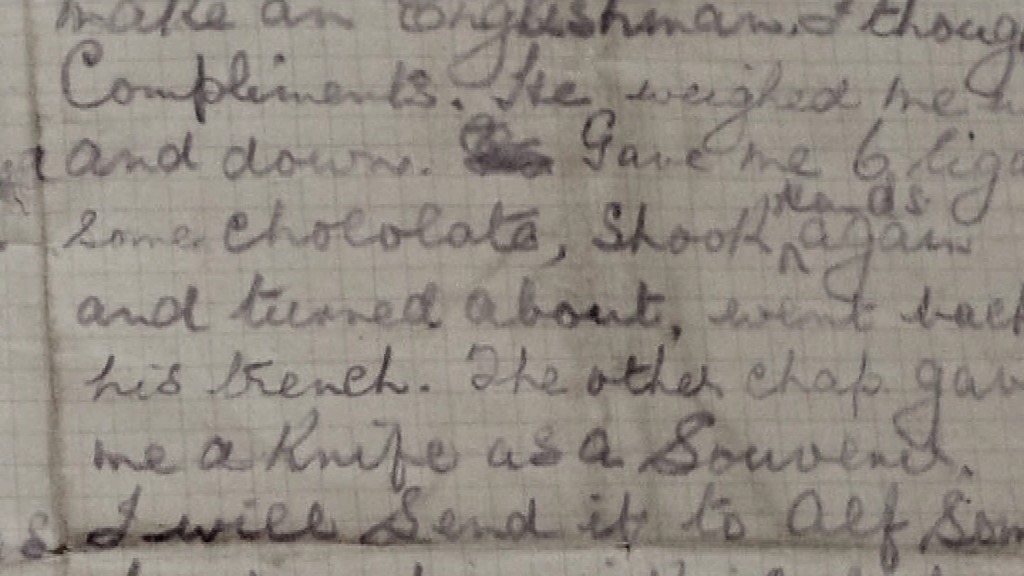 make an Englishman. I though
Compliments. He weighed me u
and down. Gave me 6 Ciga
Some Chocolate, Shook hands again
and turned about, went back
his trench. The other chap gav
me a Knife as a Souvenir.
I will Send it to Alf Som